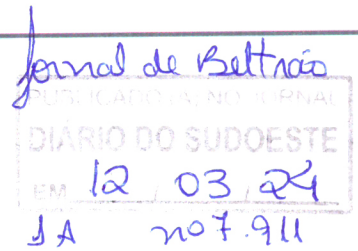 Jornal de Beltrão
PUBLICADO(A) NO JORNAL
DIÁRIO DO SUDOESTE
EM 12 / 03 / 24
1A nº 7.911